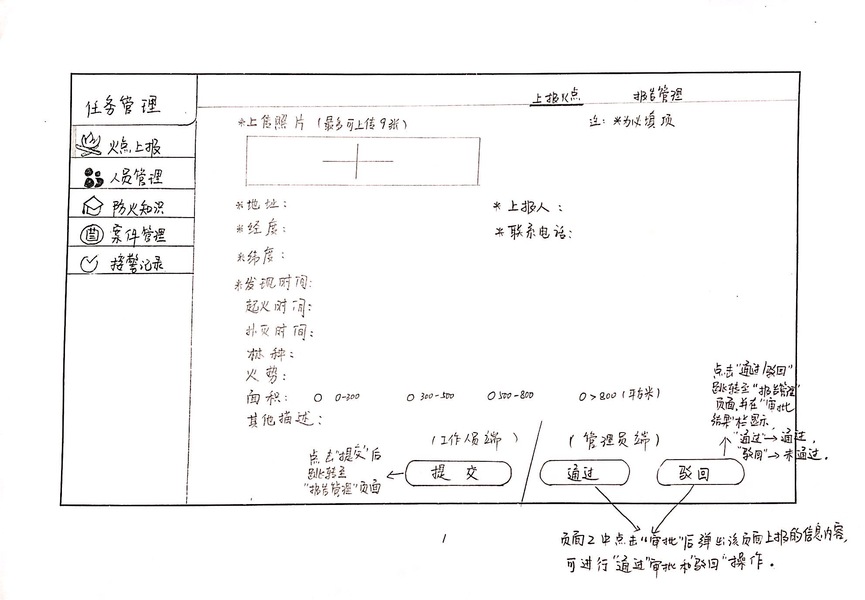 任务管理
上报火点 报告管理
*上传照片（最多可上传9张）
注：*为必填项
火点上报
人员管理
防火知识
案件管理
接警记录
*地址：
*上报人：
*经度：
*联系电话：
*纬度：
*发现时间：
起火时间：
扑灭时间：
林种：
火势：
面积： 0-300 300-500 500-800 >800（平方米）
其他描述：
（工作人员端）
（管理员端）
点击"提交"后
跳转至
"报告管理"页面
提交
通过
驳回
点击"通过/驳回"
跳转至"报告管理"
页面，并在"审批
结果"栏显示，
"通过"→通过，
"驳回"→未通过。
页面2中点击"审批"后弹出该页面上报的信息内容，
可进行"通过"审批和"驳回"操作。
1